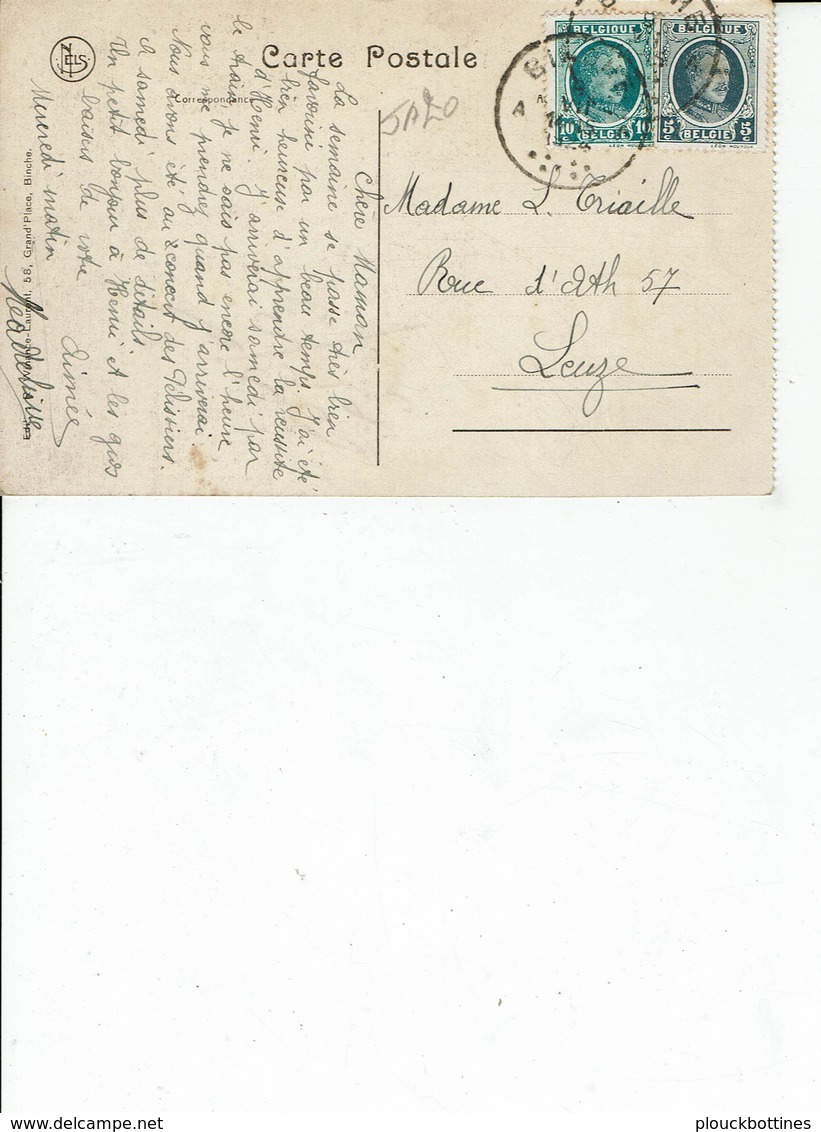 NELS
Carte Postale
Correspondance
BELGIQUE
10 c
10 c
BELGIË
BELGIQUE
5 c
5 c
BELGIË
LÉON HOUYOUX
BI
A
5A20
Madame L. Triaille
Rue d'Ath 57
Leuze
Chère Maman
La semaine se passe très bien
favorisée par un beau temps. J'ai été
bien heureuse d'apprendre la réussite
d'Henri. J'arriverai samedi par
le train je ne sais pas encore l'heure,
vous me prendrez quand j'arriverai.
Nous avons été au concert des Pélissiers.
A samedi plus de détails
Un petit bonjour à Henri et les gros
baisers de votre Aimée
Mercredi matin
Laurent, 58, Grand'Place, Binche.
plouckbottines